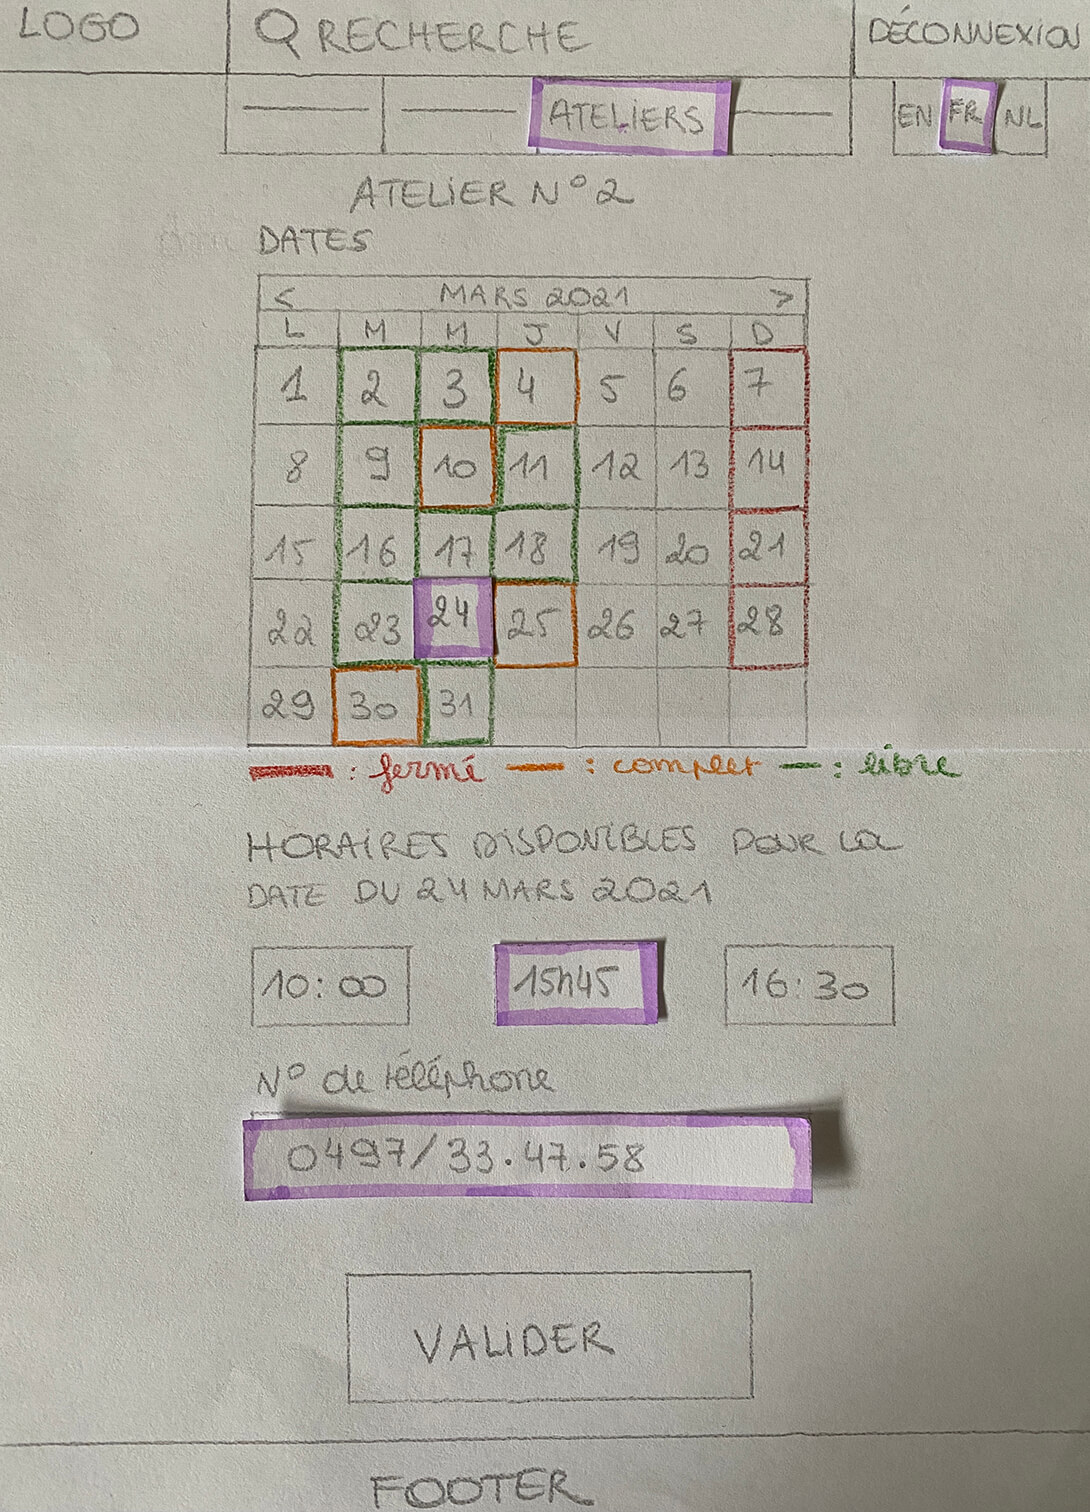 LOGO
RECHERCHE
DÉCONNEXION
ATELIERS
EN FR NL
ATELIER N° 2
DATES
< MARS 2021 >
L M M J V S D
1 2 3 4 5 6 7
8 9 10 11 12 13 14
15 16 17 18 19 20 21
22 23 24 25 26 27 28
29 30 31
: fermé : complet : libre
HORAIRES DISPONIBLES POUR LA
DATE DU 24 MARS 2021
10:00 15h45 16:30
N° de téléphone
0497/33.47.58
VALIDER
FOOTER